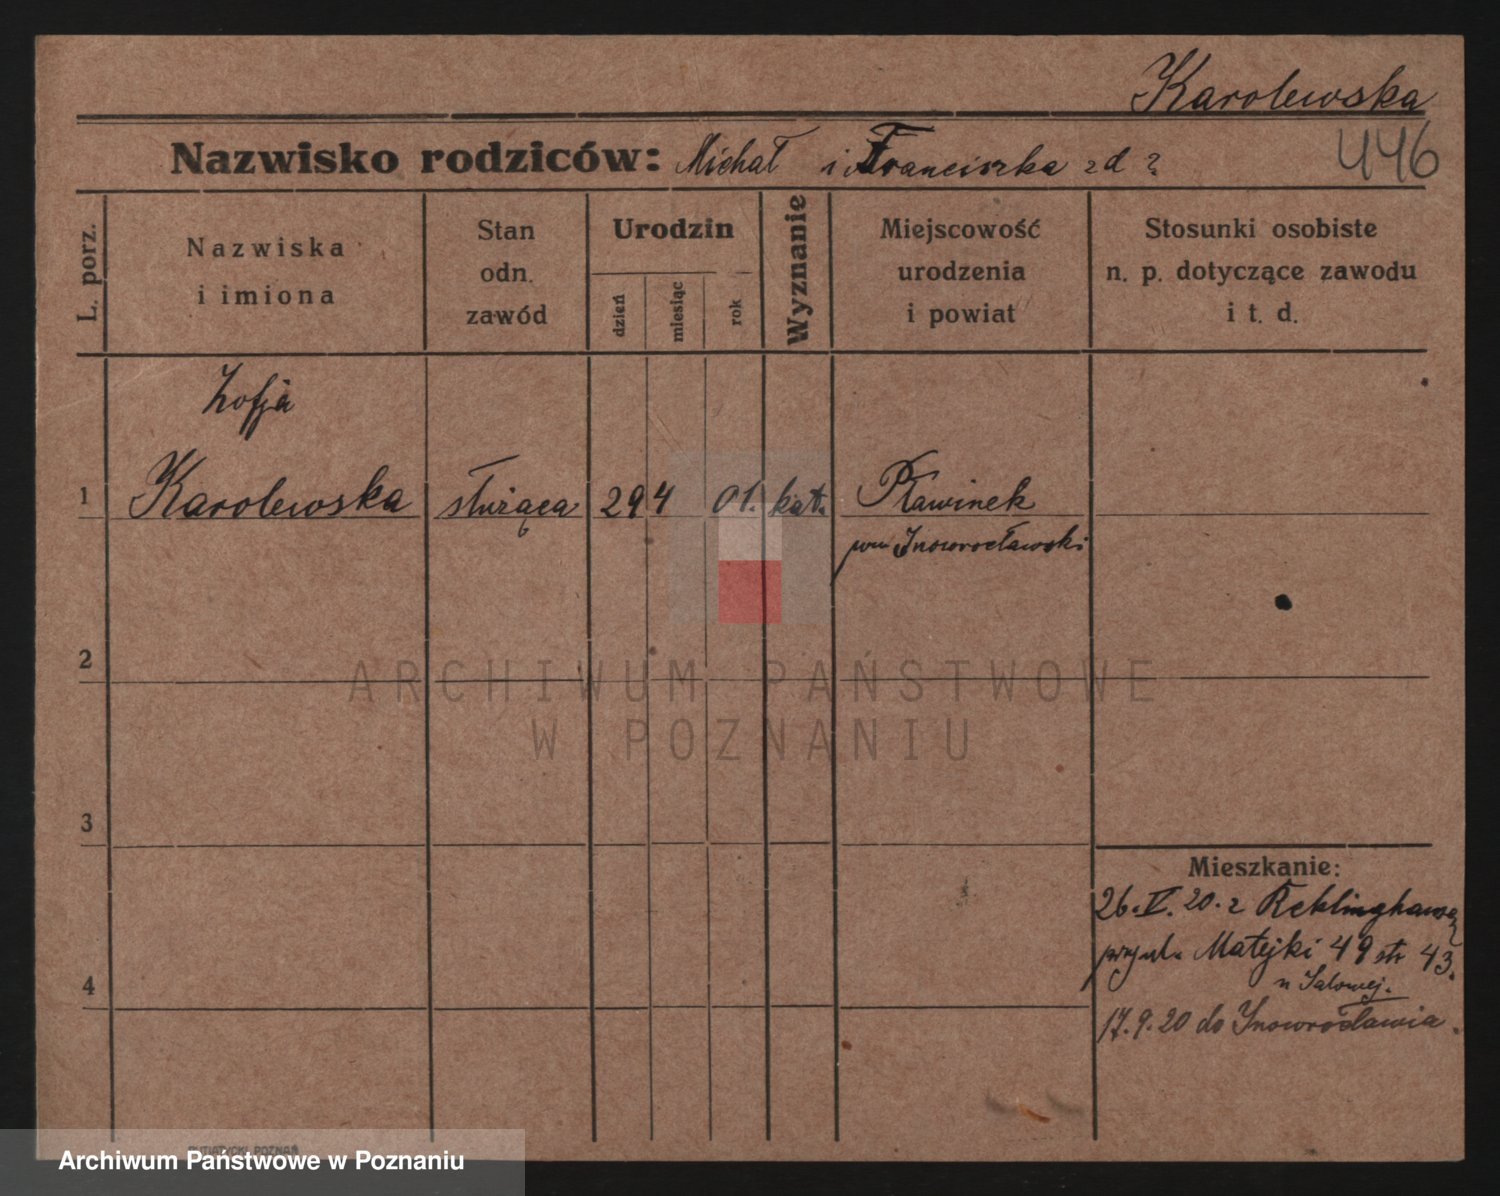 Karolewska
446
Nazwisko rodziców: Michał i Franciszka z d ?
L. porz.
Nazwiska
i imiona
Stan
odn.
zawód
Urodzin
dzień
miesiąc
rok
Wyznanie
Miejscowość
urodzenia
i powiat
Stosunki osobiste
n. p. dotyczące zawodu
i t. d.
Zofja
1 Karolewska służąca 29 4 01. kat. Pławinek
pow Inowrocławski
2
ARCHIWUM PAŃSTWOWE
W POZNANIU
3
Mieszkanie:
26. V. 20. z Reklinghausen
Matejki 49 str 43.
17. 9. 20 do Inowrocławia.
4
POZNAŃ
Archiwum Państwowe w Poznaniu